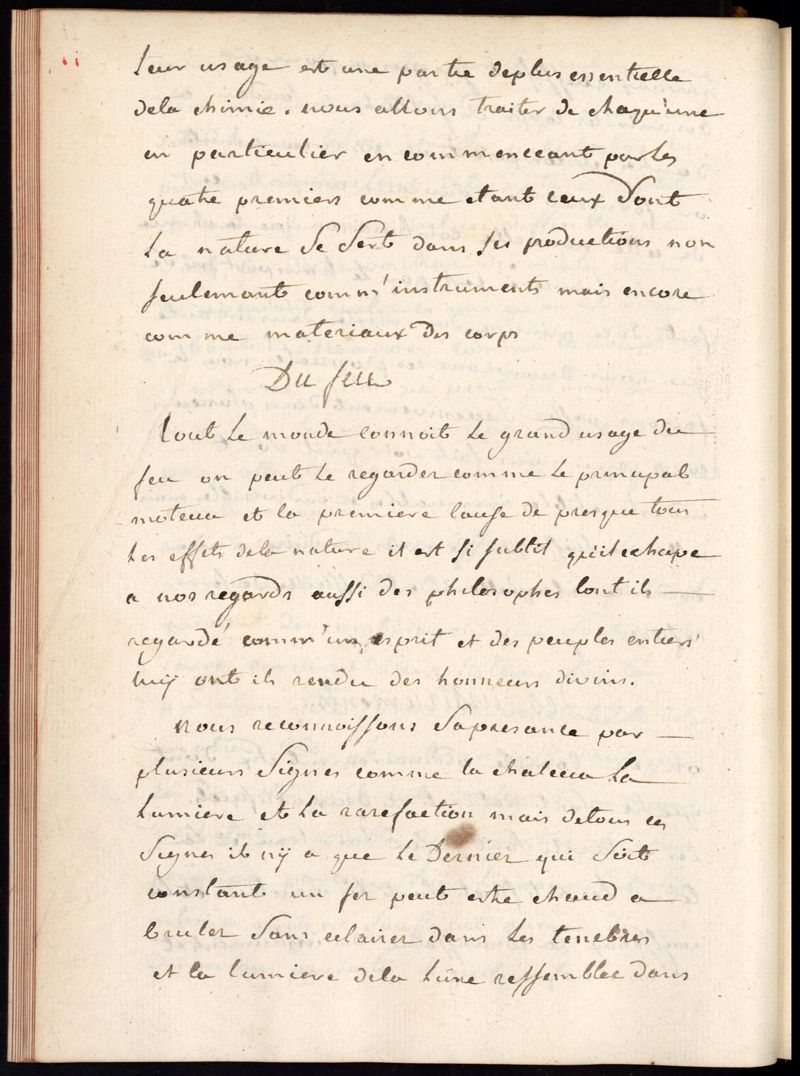 leur usage est une partie deplus essentielle
dela chimie. nous allons traiter de chaqu'une
en particulier en commenceant par les
quatre premiers comme etant ceux dont
la nature se sert dans ses productions non
seulemant comm' instruments mais encore
comme materiaux des corps
Du feu
tout le monde connoit le grand usage du
feu on peut le regarder comme le principal
moteur et la premiere cause de presque tous
les effets dela nature il est si subtil qu'il echape
a nos regards aussi des philosophes lont ils
regardé comm'un esprit et des peuples entiers
luÿ ont ils rendu des honneurs divins.
nous reconnoissons sa presance par
plusieurs signes comme la chaleur la
lumiere et la rarefaction mais detous ces
signes il nÿ a que le dernier qui soit
constant un fer peut estre chaud a
bruler sans eclairer dans les tenebres
et la lumiere dela lune ressemblee dans